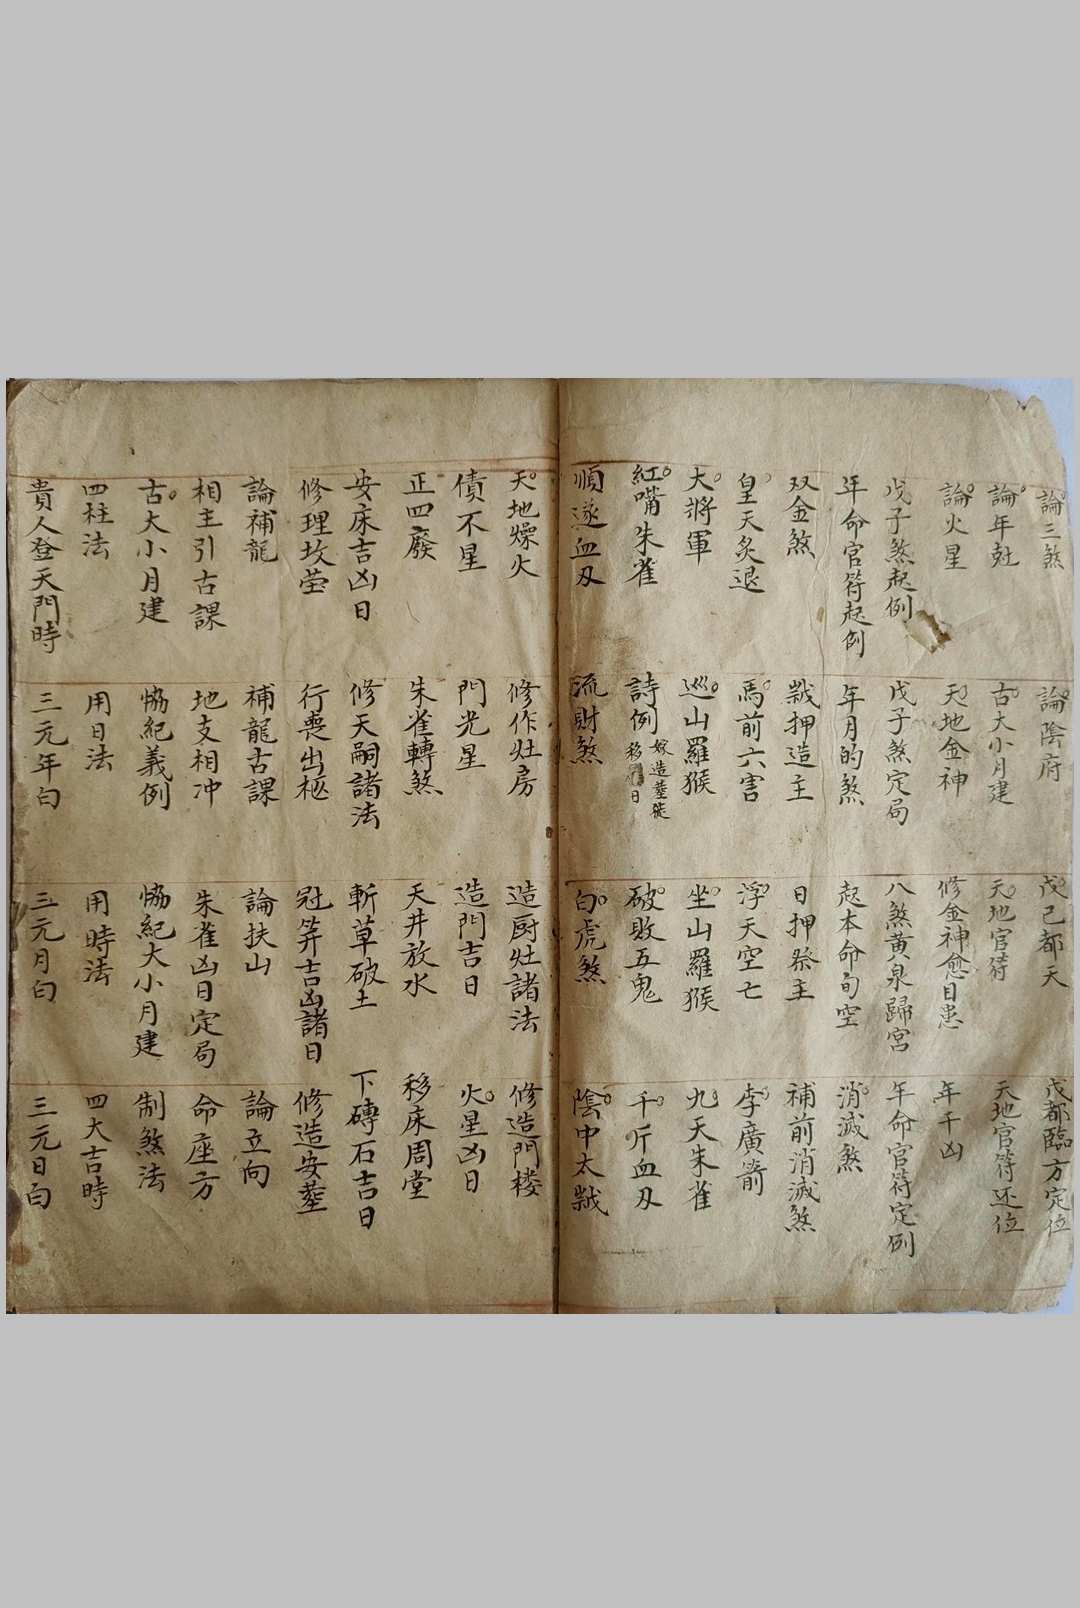 論三煞 論陰府 戊己都天 戊都臨方定位
論年尅 古大小月建 天地官符 天地官符还位
論火星 天地金神 修金神愈目患 年干凶
戊子煞起例 戊子煞定局 八煞黄泉歸宮 年命官符定例
年命官符起例 年月的煞 起本命旬空 消滅煞
双金煞 歲押造主 日押祭主 補前消滅煞
皇天炙退 馬前六害 浮天空亡 李廣箭
大將軍 巡山羅猴 坐山羅猴 九天朱雀
紅嘴朱雀 詩例 嫁造葬徙 移日 破敗五鬼 千斤血刃
順逆血刃 流財煞 白虎煞 陰中太歲
天地燥火 修作灶房 造厨灶諸法 修造門楼
債不星 門光星 造門吉日 火星凶日
正四廢 朱雀轉煞 天井放水 移床周堂
安床吉凶日 修天嗣諸法 斬草破土 下磚石吉日
修理坟茔 行喪出柩 冠笄吉凶諸日 修造安葬
論補龍 補龍古課 論扶山 論立向
相主引古課 地支相冲 朱雀凶日定局 命座方
古大小月建 恊紀義例 恊紀大小月建 制煞法
四柱法 用日法 用時法 四大吉時
貴人登天門時 三元年白 三元月白 三元日白